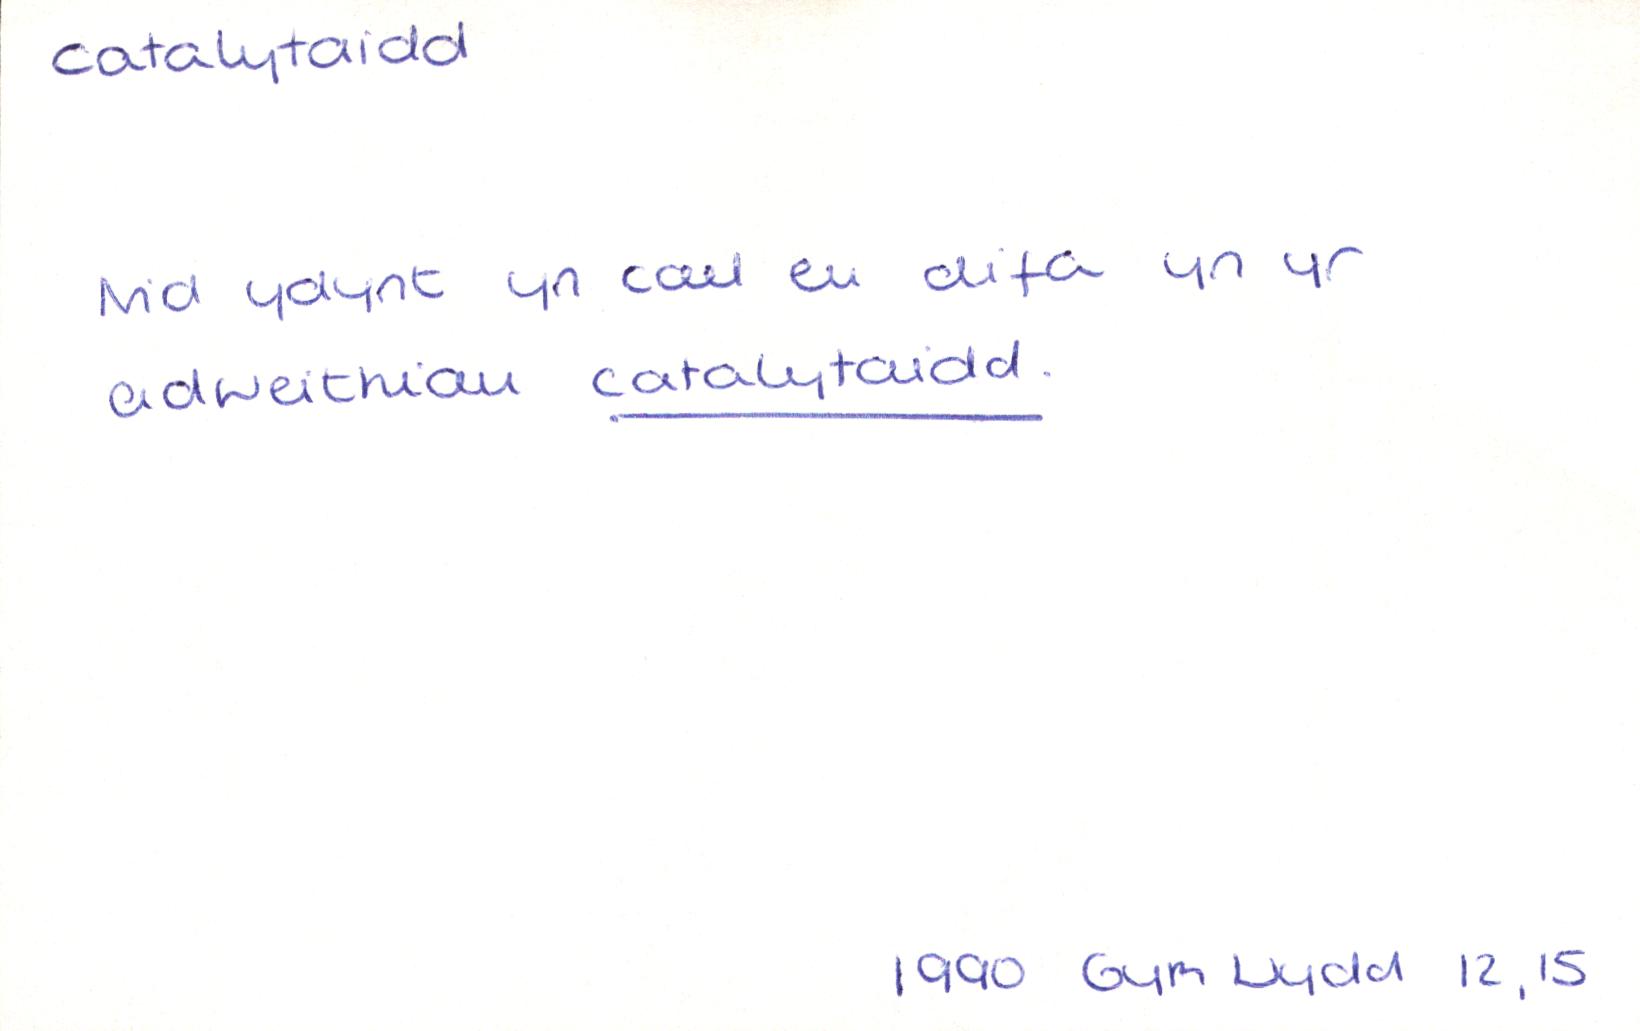 catalytaidd
Nid ydynt yn cael eu difa yn yr
adweithiau catalytaidd.
1990 Gym Wydd 12, 15